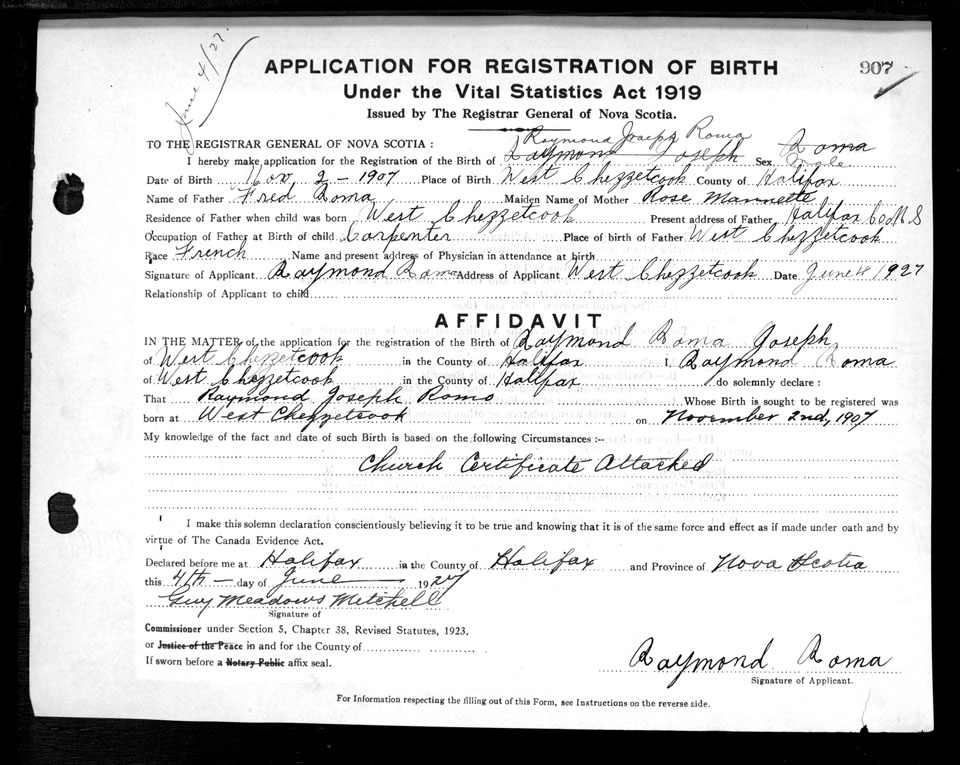 June 4/27.
APPLICATION FOR REGISTRATION OF BIRTH
907
Under the Vital Statistics Act 1919
Issued by The Registrar General of Nova Scotia.
Raymond Joseph Roma
TO THE REGISTRAR GENERAL OF NOVA SCOTIA :
I hereby make application for the Registration of the Birth of Raymond Joseph Roma Sex Male
Date of Birth Nov. 2 - 1907 Place of Birth West Chezzetcook County of Halifax
Name of Father Fred Roma Maiden Name of Mother Rose Mannette
Residence of Father when child was born West Chezzetcook Present address of Father Halifax Co N S
Occupation of Father at Birth of child Carpenter Place of birth of Father West Chezzetcook
Race French Name and present address of Physician in attendance at birth
Signature of Applicant Raymond Roma Address of Applicant West Chezzetcook Date June 4 1927
Relationship of Applicant to child
AFFIDAVIT
IN THE MATTER of the application for the registration of the Birth of Raymond Roma Joseph
of West Chezzetcook in the County of Halifax I, Raymond Roma
of West Chezzetcook in the County of Halifax do solemnly declare :
That Raymond Joseph Roma Whose Birth is sought to be registered was
born at West Chezzetcook on November 2nd, 1907
My knowledge of the fact and date of such Birth is based on the following Circumstances :--
Church Certificate Attached
I make this solemn declaration conscientiously believing it to be true and knowing that it is of the same force and effect as if made under oath and by
virtue of The Canada Evidence Act.
Declared before me at Halifax in the County of Halifax and Province of Nova Scotia
this 4th - day of June 1927
Guy Meadows Mitchell
Signature of
Commissioner under Section 5, Chapter 38, Revised Statutes, 1923,
or Justice of the Peace in and for the County of
If sworn before a Notary Public affix seal.
Raymond Roma
Signature of Applicant.
For Information respecting the filling out of this Form, see Instructions on the reverse side.